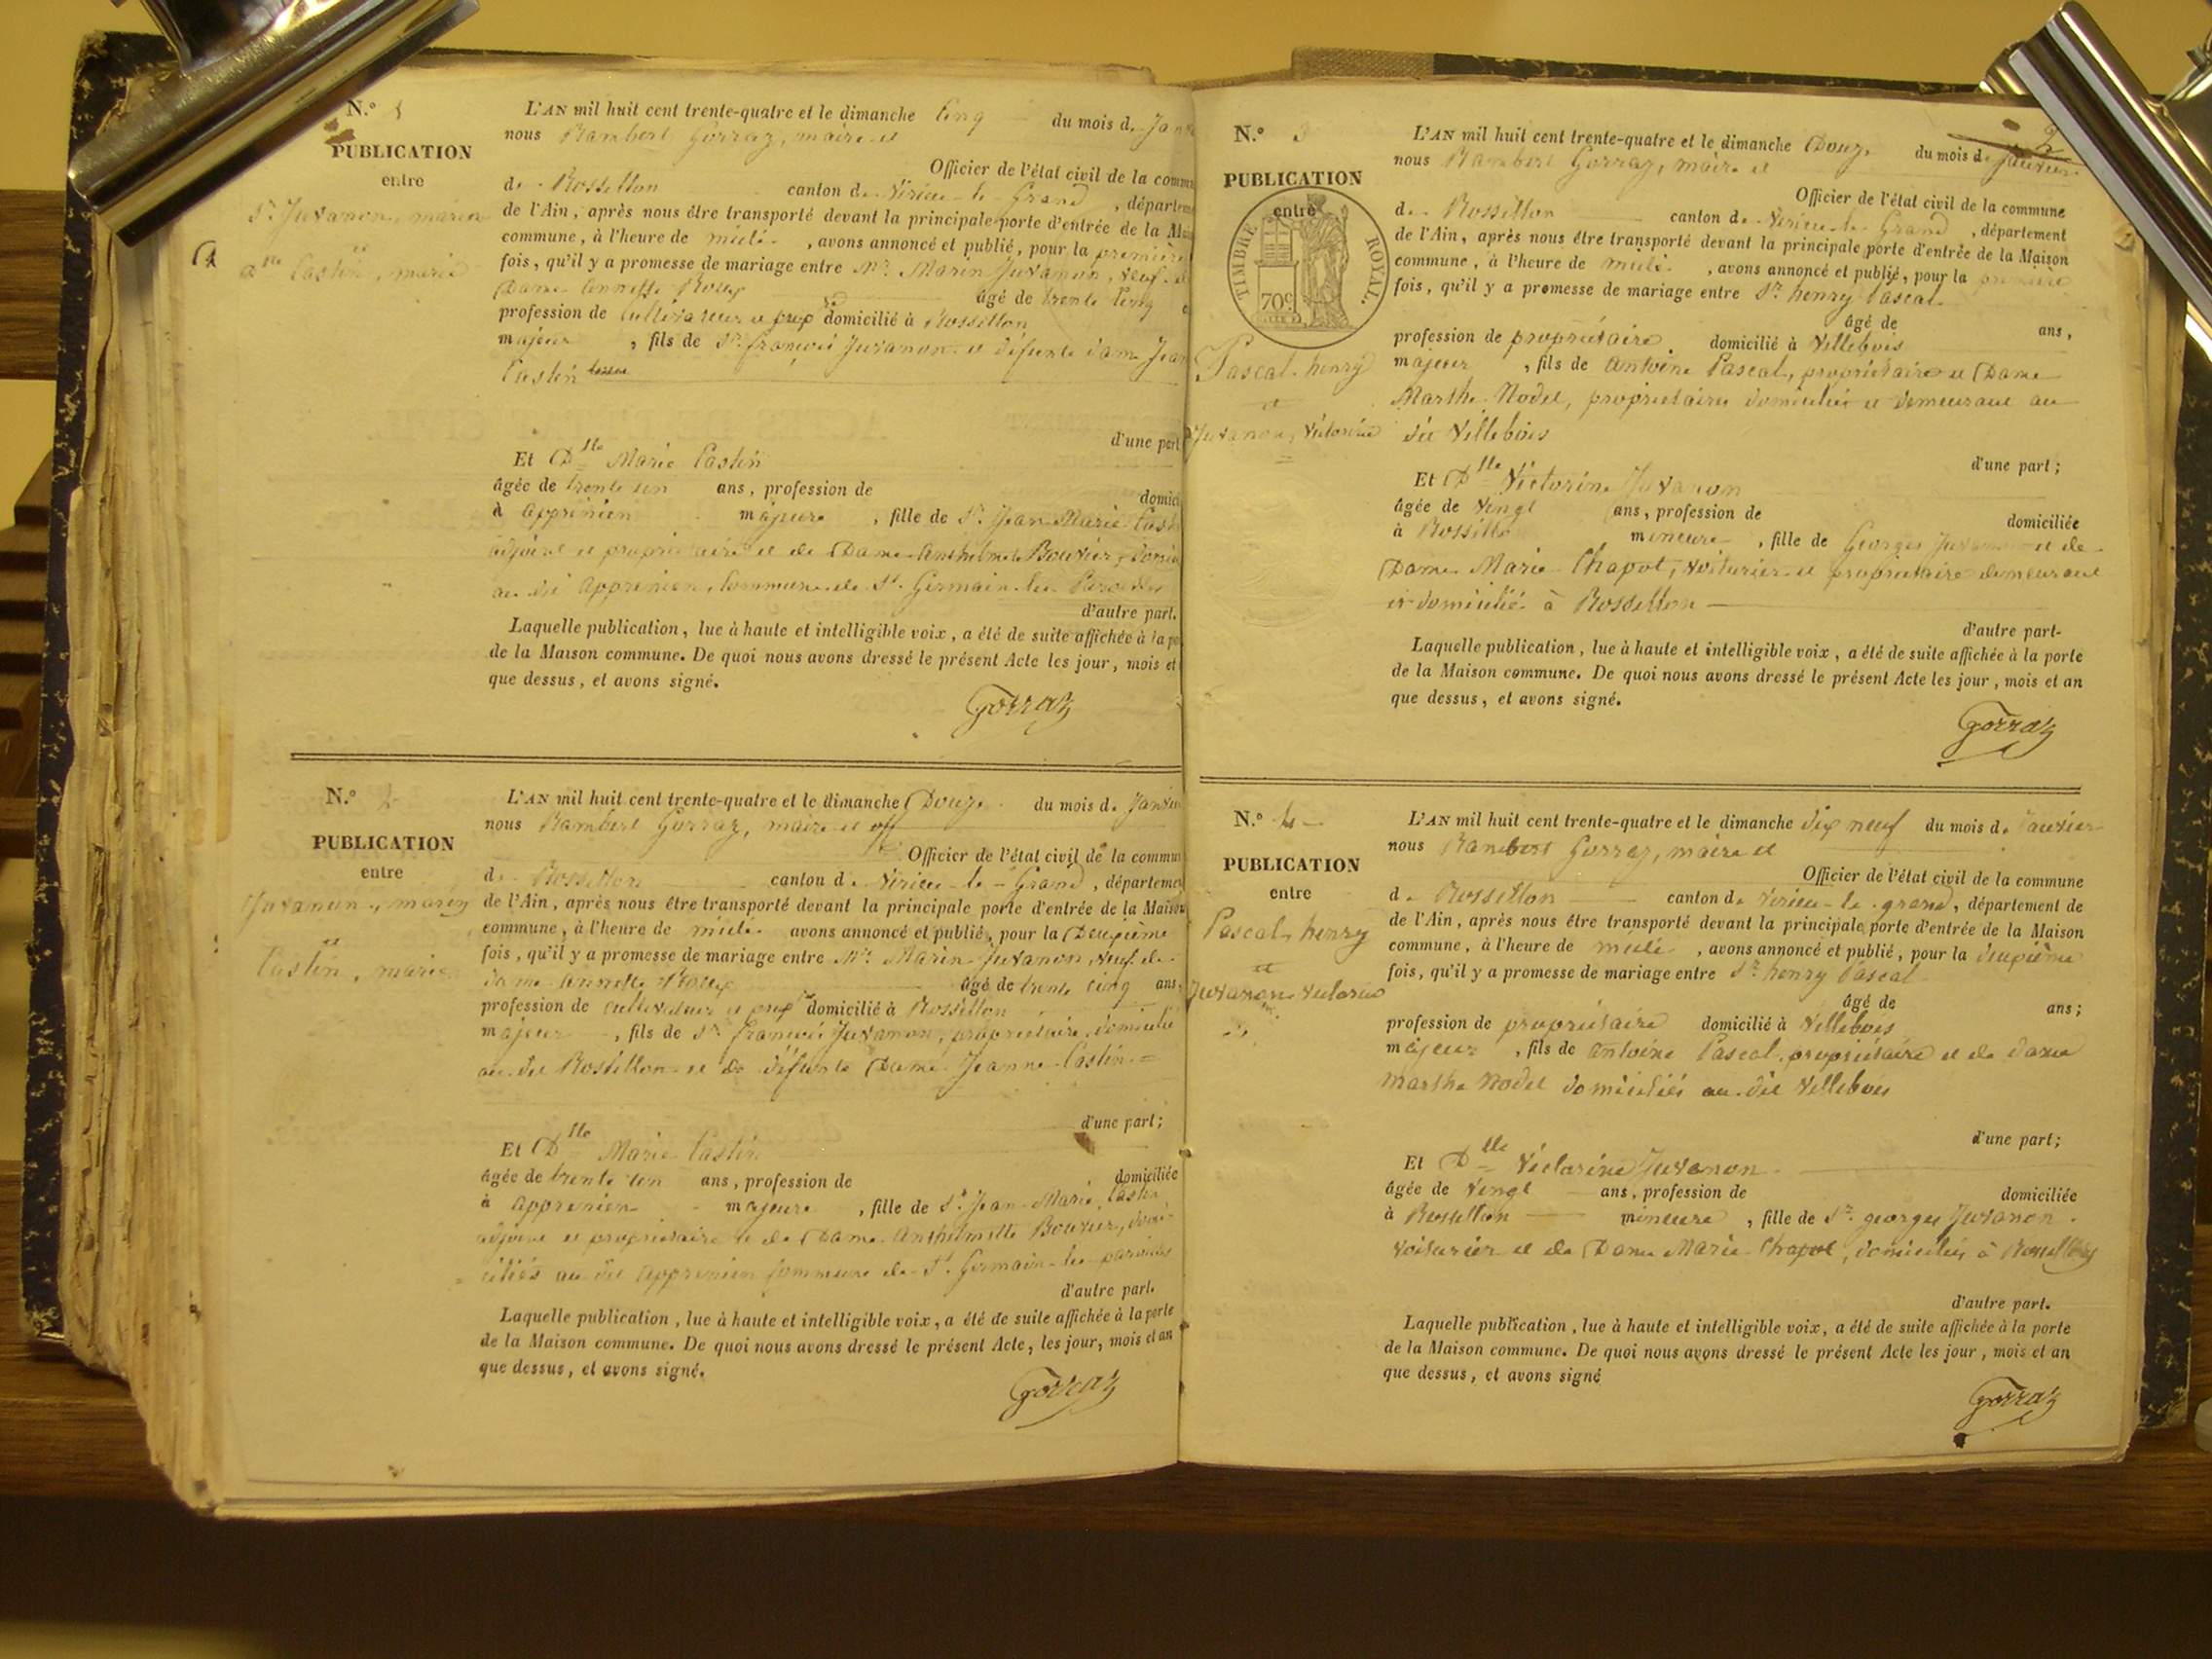 N.º 1
PUBLICATION
entre
Sr. Juvanon, marin
et
Dlle Castin, marie
L'AN mil huit cent trente-quatre et le dimanche Cinq du mois de Janv
nous Rambert Gorraz, maire et
Officier de l'état civil de la comm
de Rossillon canton de Virieu-le-Grand, départem
de l'Ain, après nous être transporté devant la principale porte d'entrée de la Mai
commune, à l'heure de midi, avons annoncé et publié, pour la première
fois, qu'il y a promesse de mariage entre Mr. Marin Juvanon, veuf d
Dame Annette Roux âgé de trente cinq
profession de cultivateur et prop.re domicilié à Rossillon
majeur, fils de Sr. françois Juvanon et défunte dame Jean
Castin
d'une part
Et Dlle Marie Castin
âgée de trente un ans, profession de domici
à apprenien majeure, fille de Sr. Jean Marie Cast
adjoint et propriétaire et de Dame Anthelmette Bouvier, domi
au dit Apprenien, Commune de St. Germain-les-Paroisses
d'autre part.
Laquelle publication, lue à haute et intelligible voix, a été de suite affichée à la po
de la Maison commune. De quoi nous avons dressé le présent Acte les jour, mois et
que dessus, et avons signé.
Gorraz
N.º 2
PUBLICATION
entre
Juvanon, marin
et
Castin, marie
L'AN mil huit cent trente-quatre et le dimanche Douze du mois de Janvie
nous Rambert Gorraz, maire et off
Officier de l'état civil de la commun
de Rossillon canton de Virieu-le-Grand, départemen
de l'Ain, après nous être transporté devant la principale porte d'entrée de la Maison
commune, à l'heure de midi avons annoncé et publié, pour la Deuxième
fois, qu'il y a promesse de mariage entre Mr. Marin Juvanon, veuf de
dame Annette Roux âgé de trente cinq ans,
profession de cultivateur et prop.re domicilié à Rossillon
majeur, fils de Sr. françois Juvanon, propriétaire, domicilié
au dit Rossillon et de défunte Dame Jeanne Castin
d'une part;
Et Dlle Marie Castin
âgée de trente un ans, profession de domiciliée
à apprenien majeure, fille de Sr. Jean-Marie Castin,
adjoint et propriétaire et de Dame Anthelmette Bouvier, domi-
ciliés au dit Apprenien Commune de St. Germain-les-paroisses
d'autre part.
Laquelle publication, lue à haute et intelligible voix, a été de suite affichée à la porte
de la Maison commune. De quoi nous avons dressé le présent Acte, les jour, mois et an
que dessus, et avons signé.
Gorraz
2
N.º 3
PUBLICATION
entre
TIMBRE ROYAL.
70c
Pascal henry
et
Juvanon, Victorine
L'AN mil huit cent trente-quatre et le dimanche Douze du mois de Janvier
nous Rambert Gorraz, maire et
Officier de l'état civil de la commune
de Rossillon canton de Virieu-le-Grand, département
de l'Ain, après nous être transporté devant la principale porte d'entrée de la Maison
commune, à l'heure de midi, avons annoncé et publié, pour la première
fois, qu'il y a promesse de mariage entre Sr. henry Pascal
âgé de ans,
profession de propriétaire domicilié à Villebois
majeur, fils de Antoine Pascal, propriétaire et Dame
Marthe Nodet, propriétaires domiciliés et demeurant au
dit Villebois
d'une part;
Et Dlle Victorine Juvanon
âgée de vingt ans, profession de domiciliée
à Rossillo mineure, fille de Georges Juvanon et de
Dame Marie Chapot, voiturier et propriétaire demeurant
et domicilié à Rossillon
d'autre part-
Laquelle publication, lue à haute et intelligible voix, a été de suite affichée à la porte
de la Maison commune. De quoi nous avons dressé le présent Acte les jour, mois et an
que dessus, et avons signé.
Gorraz
N.º 4
PUBLICATION
entre
Pascal henry
et
Juvanon Victorine
L'AN mil huit cent trente-quatre et le dimanche dix neuf du mois de Janvier
nous Rambert Gorraz, maire et
Officier de l'état civil de la commune
de Rossillon canton de Virieu-le-grand, département de
de l'Ain, après nous être transporté devant la principale porte d'entrée de la Maison
commune, à l'heure de midi, avons annoncé et publié, pour la deuxième
fois, qu'il y a promesse de mariage entre Sr. henry Pascal
âgé de ans;
profession de propriétaire domicilié à Villebois
majeur, fils de Antoine Pascal, propriétaire et de dame
marthe Nodet domiciliés au dit Villebois
d'une part;
Et Dlle Victorine Juvanon
âgée de vingt ans, profession de domiciliée
à Rossillon mineure, fille de Sr. georges Juvanon
voiturier et de Dame Marie Chapot, domiciliés à Rossillon
d'autre part.
Laquelle publication, lue à haute et intelligible voix, a été de suite affichée à la porte
de la Maison commune. De quoi nous avons dressé le présent Acte les jour, mois et an
que dessus, et avons signé
Gorraz